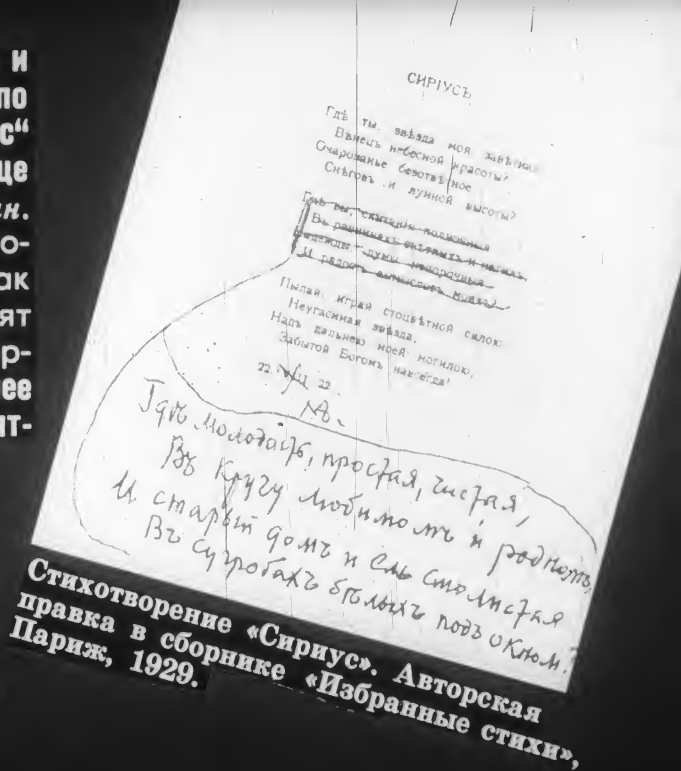 и
по
с“
ще
н.
о-
ак
ят
р-
ее
ыт-
СИРІУСЪ
Гдѣ ты, звѣзда моя завѣтная
Вѣнецъ небесной красоты?
Очарованье безотвѣтное
Снѣговъ и лунной высоты?
Гдѣ вы, скитанія полночныя
Въ равнинахъ свѣтлыхъ и нагихъ,
Надежды, думы непорочныя
И радость вымысловъ моихъ?
Пылай, играй стоцвѣтной силою
Неугасимая звѣзда,
Надъ дальнею моей могилою,
Забытой Богомъ навсегда!
22. 22
Гдѣ молодость, простая, чистая,
Въ кругу любимомъ и родномъ,
И старый домъ и ель смолистая
Въ сугробахъ бѣлыхъ подъ окномъ?
Стихотворение «Сириус». Авторская
правка в сборнике «Избранные стихи»,
Париж, 1929.